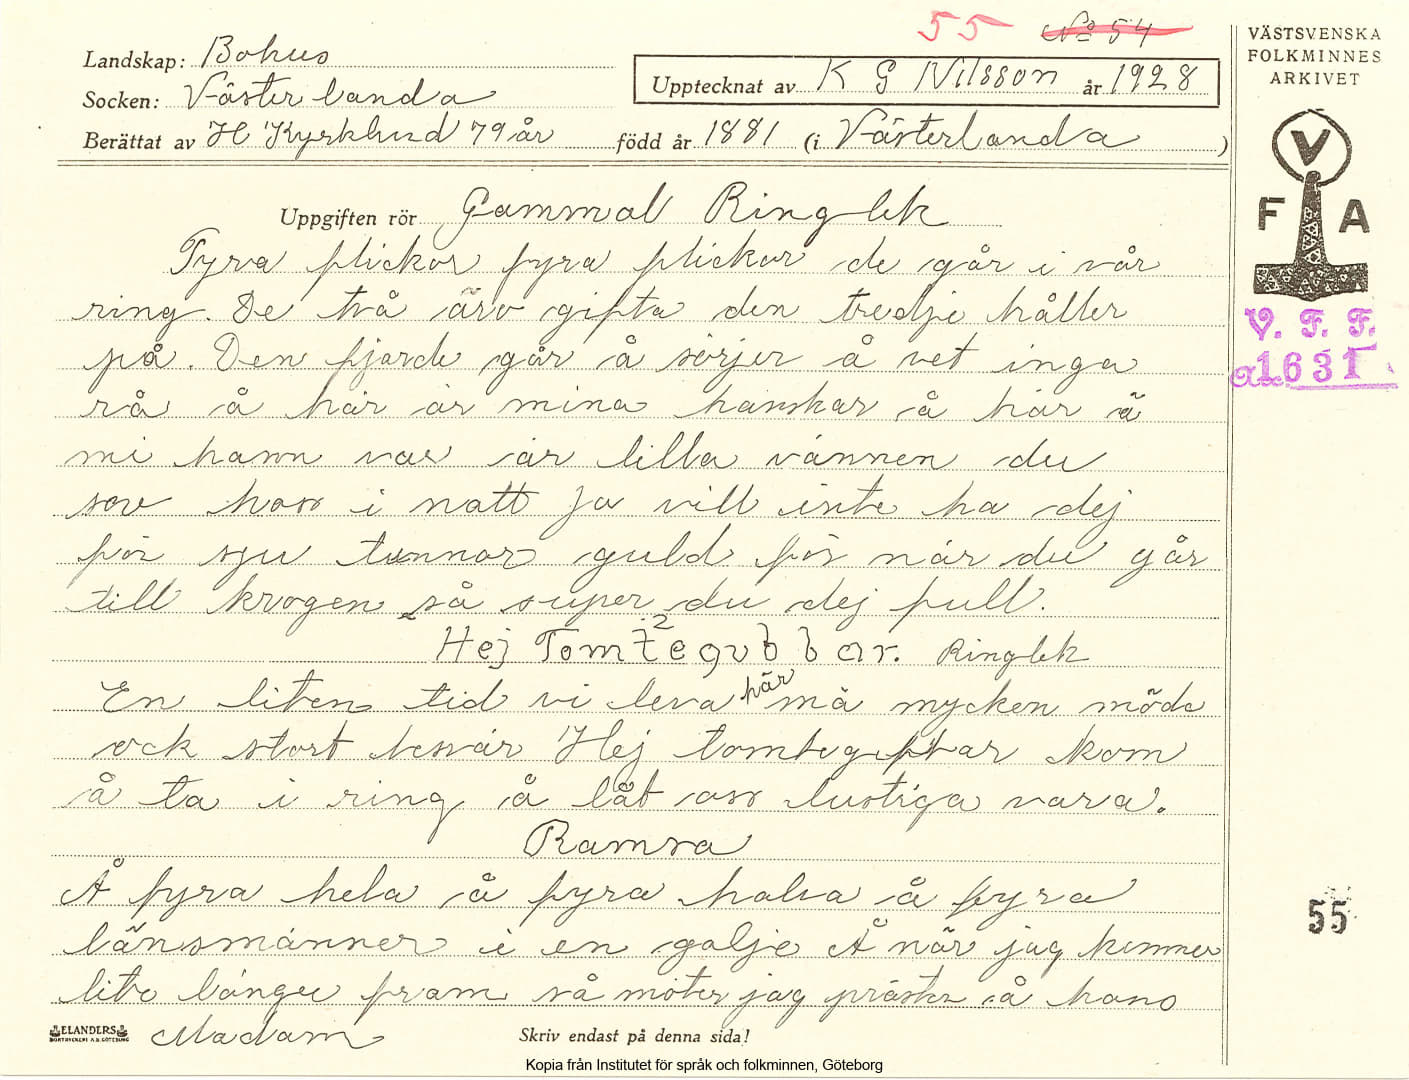 55 No 54
Landskap: Bohus
Socken: Västerlanda
Upptecknat av K G Nilsson år 1928
Berättat av H Kyrklund 79 år född år 1881 (i Västerlanda)
VÄSTSVENSKA
FOLKMINNES
ARKIVET
V
F A
V. F. F.
1631
Uppgiften rör Gammal Ringlek
Fyra flickor fyra flickor de går i vår
ring. De två äro gifta den tredje håller
på. Den fjarde går å sörjer å vet inga
rå å här är mina hanskar å här ä
mi hann var är lilla vännen du
sov hoss i natt Ja vill inte ha dej
för sju tunnor guld för når du går
till krogen så super du dej full.
Hej Tomtegubbar. 2 Ringlek
En liten tid vi leva här må mycken möda
ock stort besvär Hej tomtegubbar kom
å ta i ring å låt oss lustiga vara.
Ramsa
Å fyra hela å fyra halva å fyra
länsmänner i en galje Å når jag kommer
lite länger fram så möter jag präster å hans
Madam
55
ELANDERS
BOKTRYCKERI A.B. GÖTEBORG
Skriv endast på denna sida!
Kopia från Institutet för språk och folkminnen, Göteborg